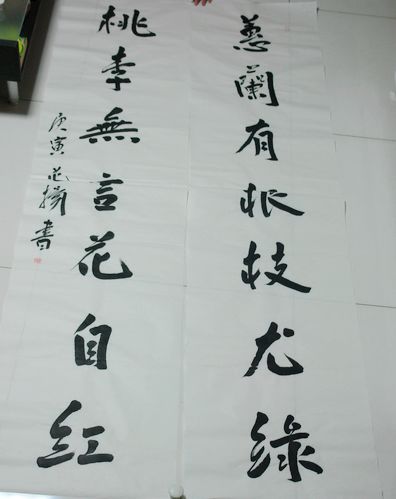 蕙蘭有根枝尤綠
桃李無言花自紅
庚寅書